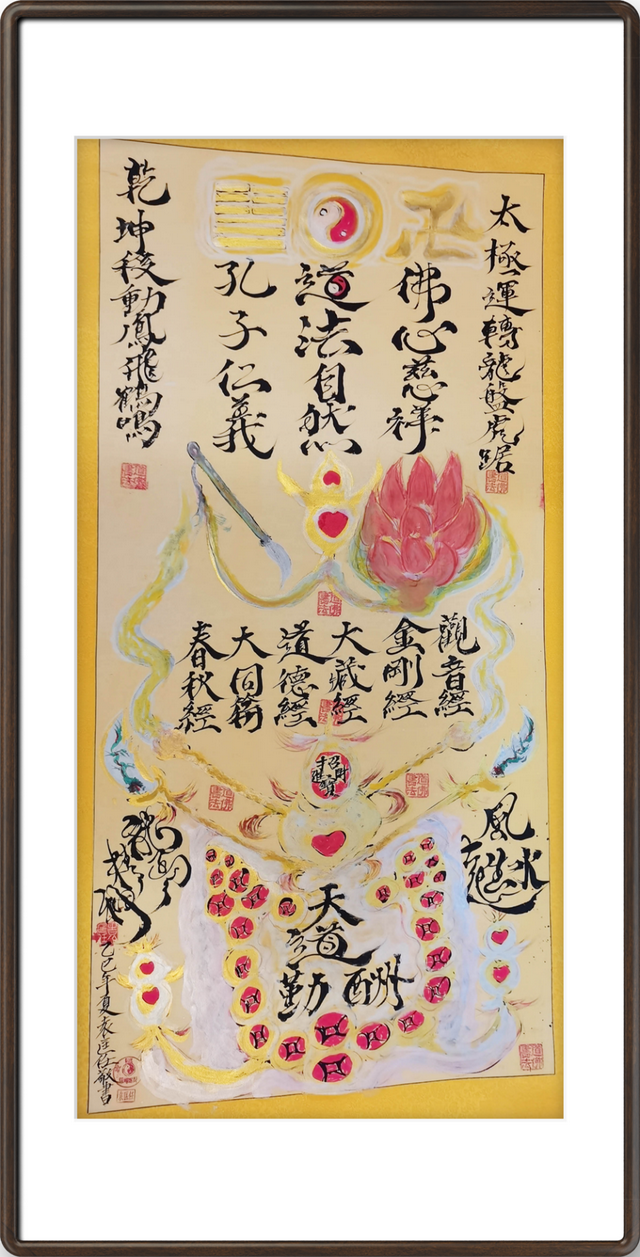 太極運轉龍盤虎踞
佛心慈祥
道法自然
孔子仁義
乾坤移動鳳飛鶴鳴
觀音經
金剛經
大藏經
道德經
春秋經
招財進寶
風水
天道
酬勤
乙巳年夏
書